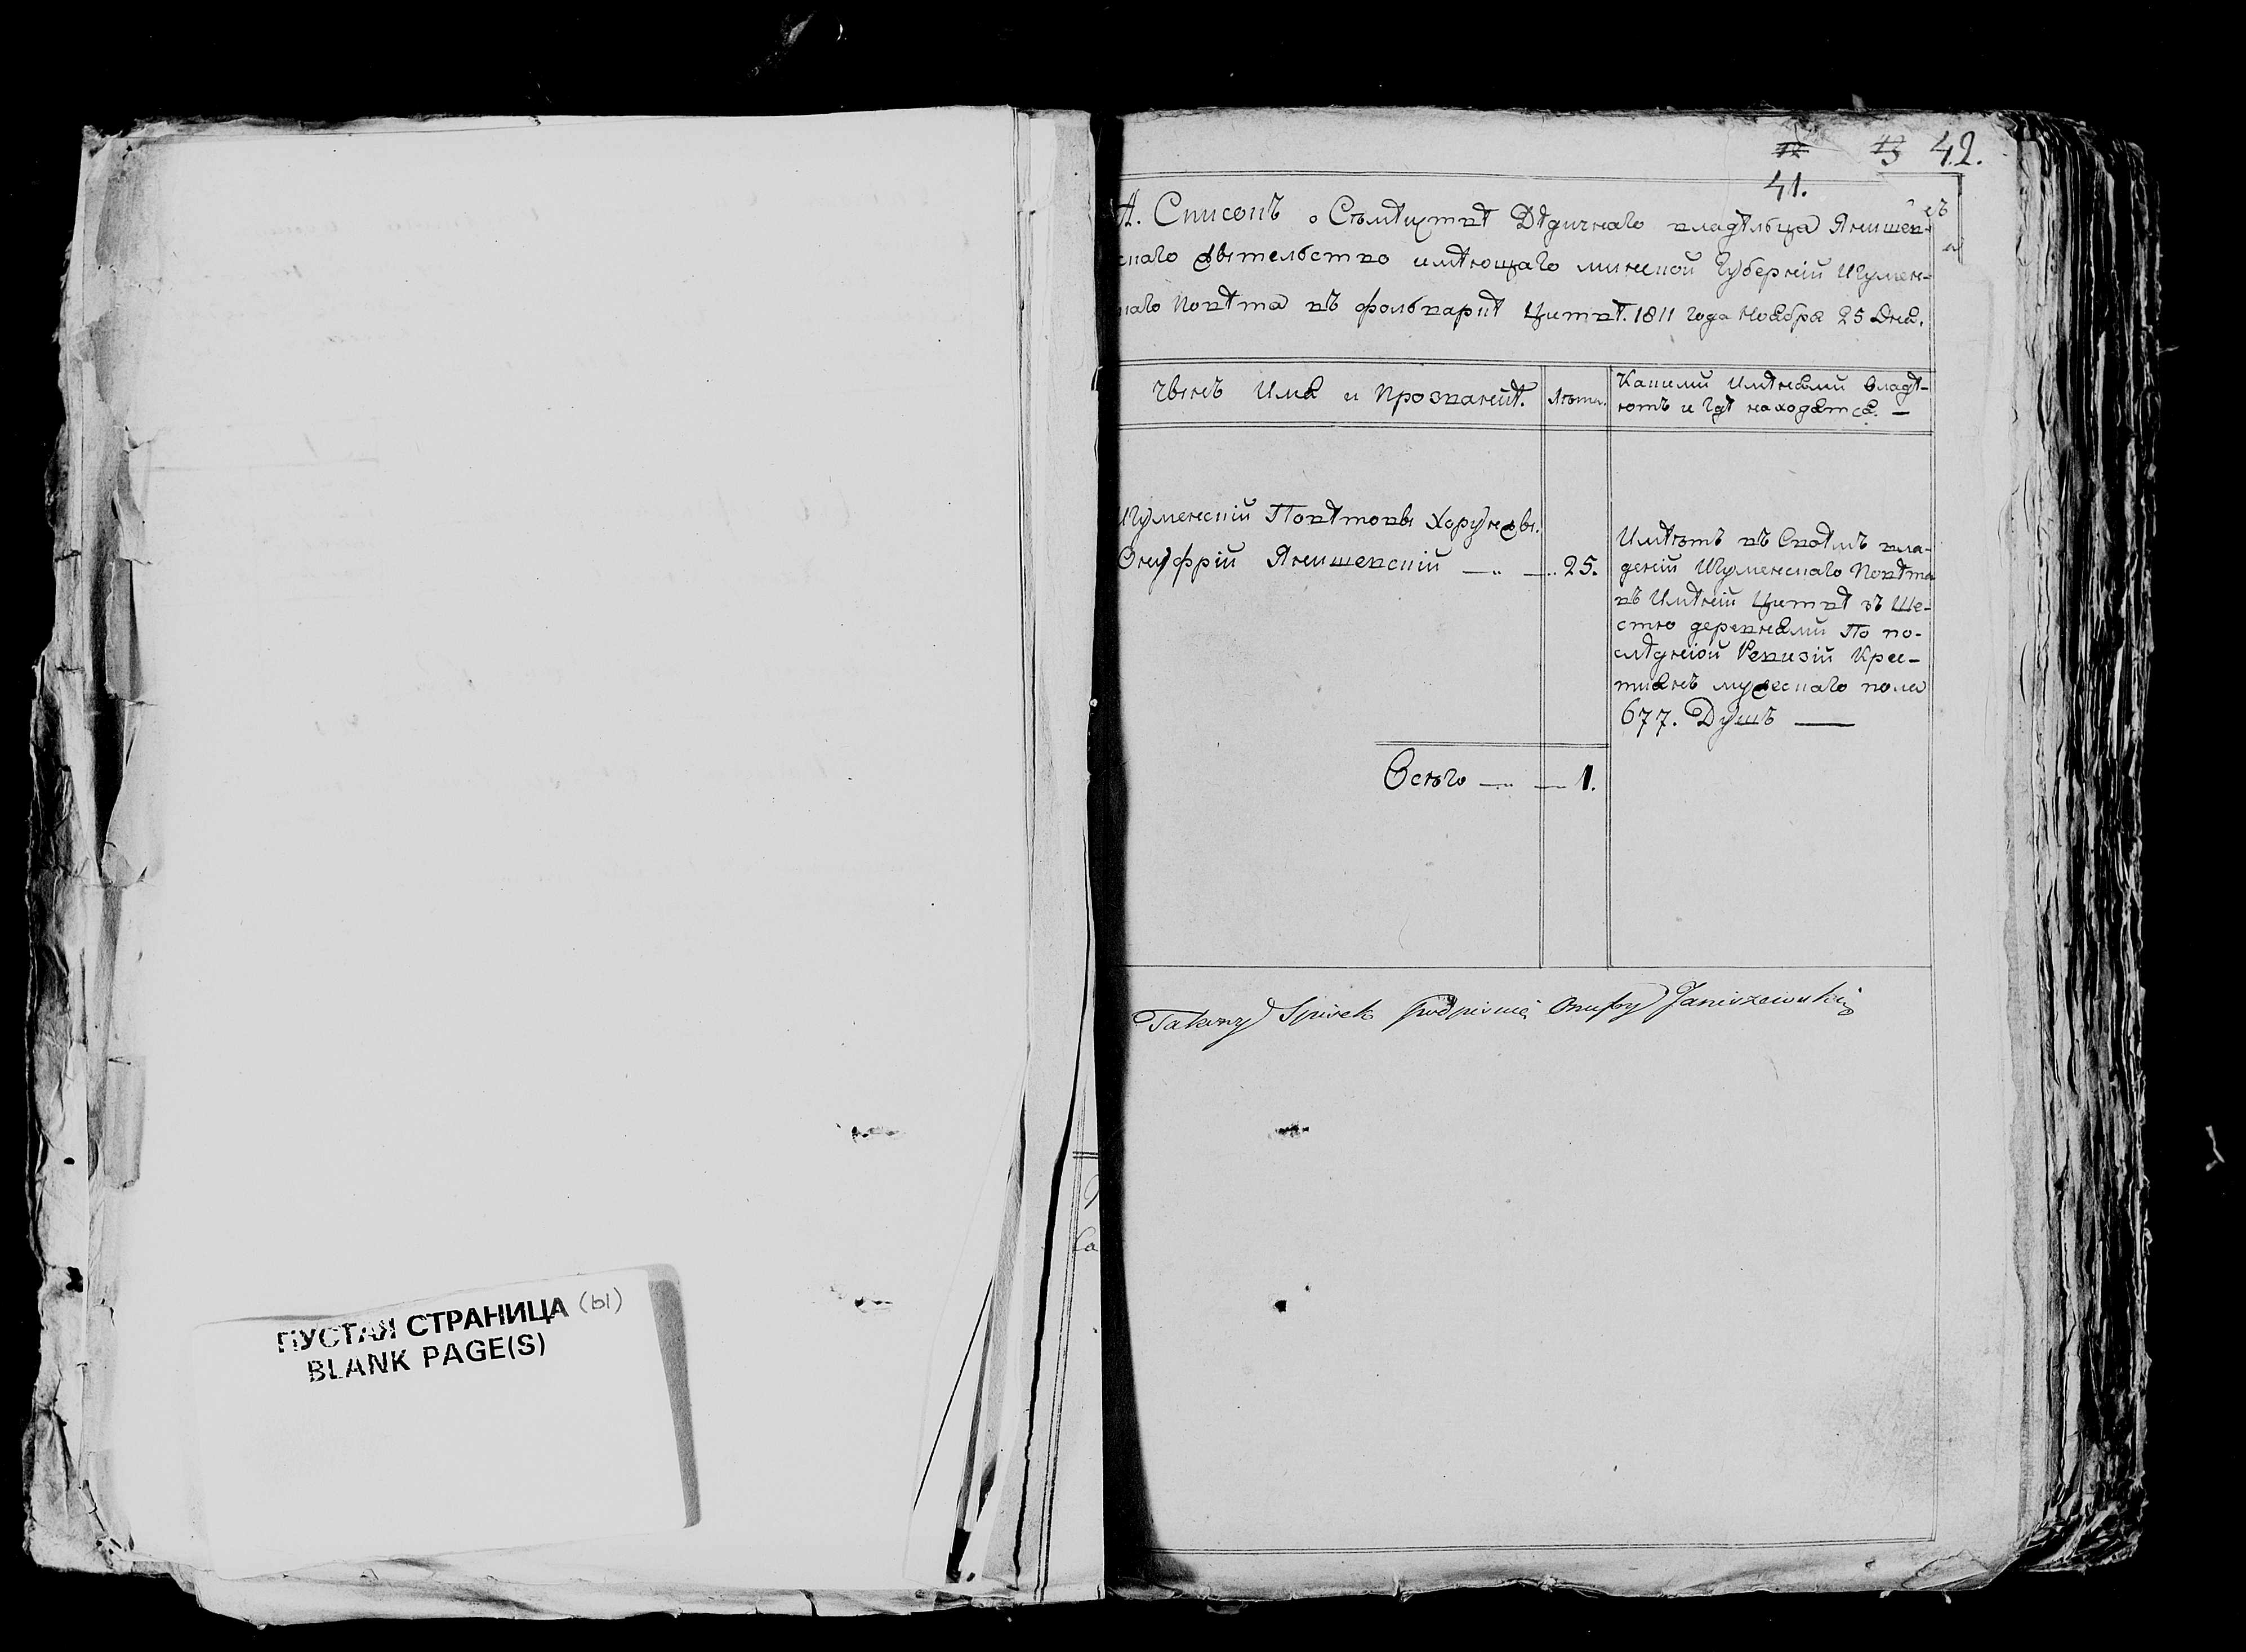 ПУСТАЯ СТРАНИЦА (ы)
BLANK PAGE(S)
42.
41.
А. Списокъ о Сѣмѣиствѣ Дѣдичнаго владѣльца Янишев-
скаго жытельство имѣющаго минской Губерніи Игумен-
скаго Повѣта въ фольваркѣ Цитвѣ. 1811 года Ноября 25 Дня.
Чынъ Имя и Прозваніе.
Лѣта.
Какими Имѣнями владѣ-
ютъ и гдѣ находятся. —
Игуменскій Повѣтовы Хорунжы.
Онуфрій Янишевскій — — 25.
Имѣетъ въ Своѣмъ вла-
деніи Игуменскаго Повѣта
въ Имѣніи Цитвѣ зъ Ше-
стю деревнями По по-
слѣдніой Ревизіи Крес-
тиянъ мужескаго пола
677. Душъ —
Всѣго — — 1.
Takowy Spisek podpisuię Onufry Janiszewski